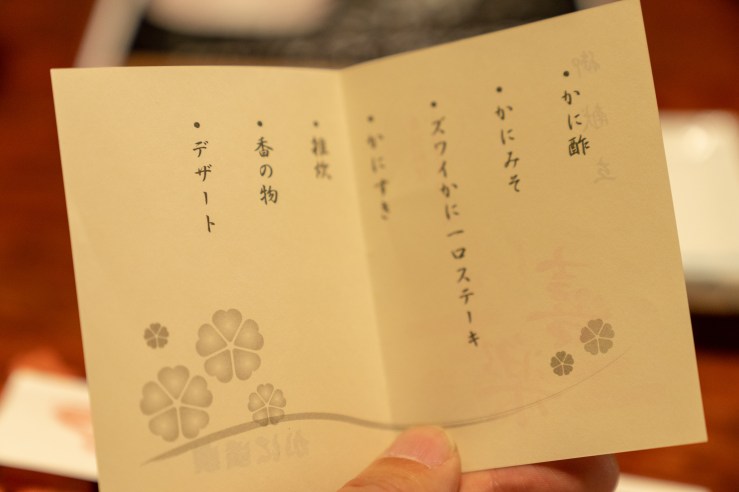 ・かに酢
・かにみそ
・ズワイかに一口ステーキ
・かにすき
・雑炊
・香の物
・デザート